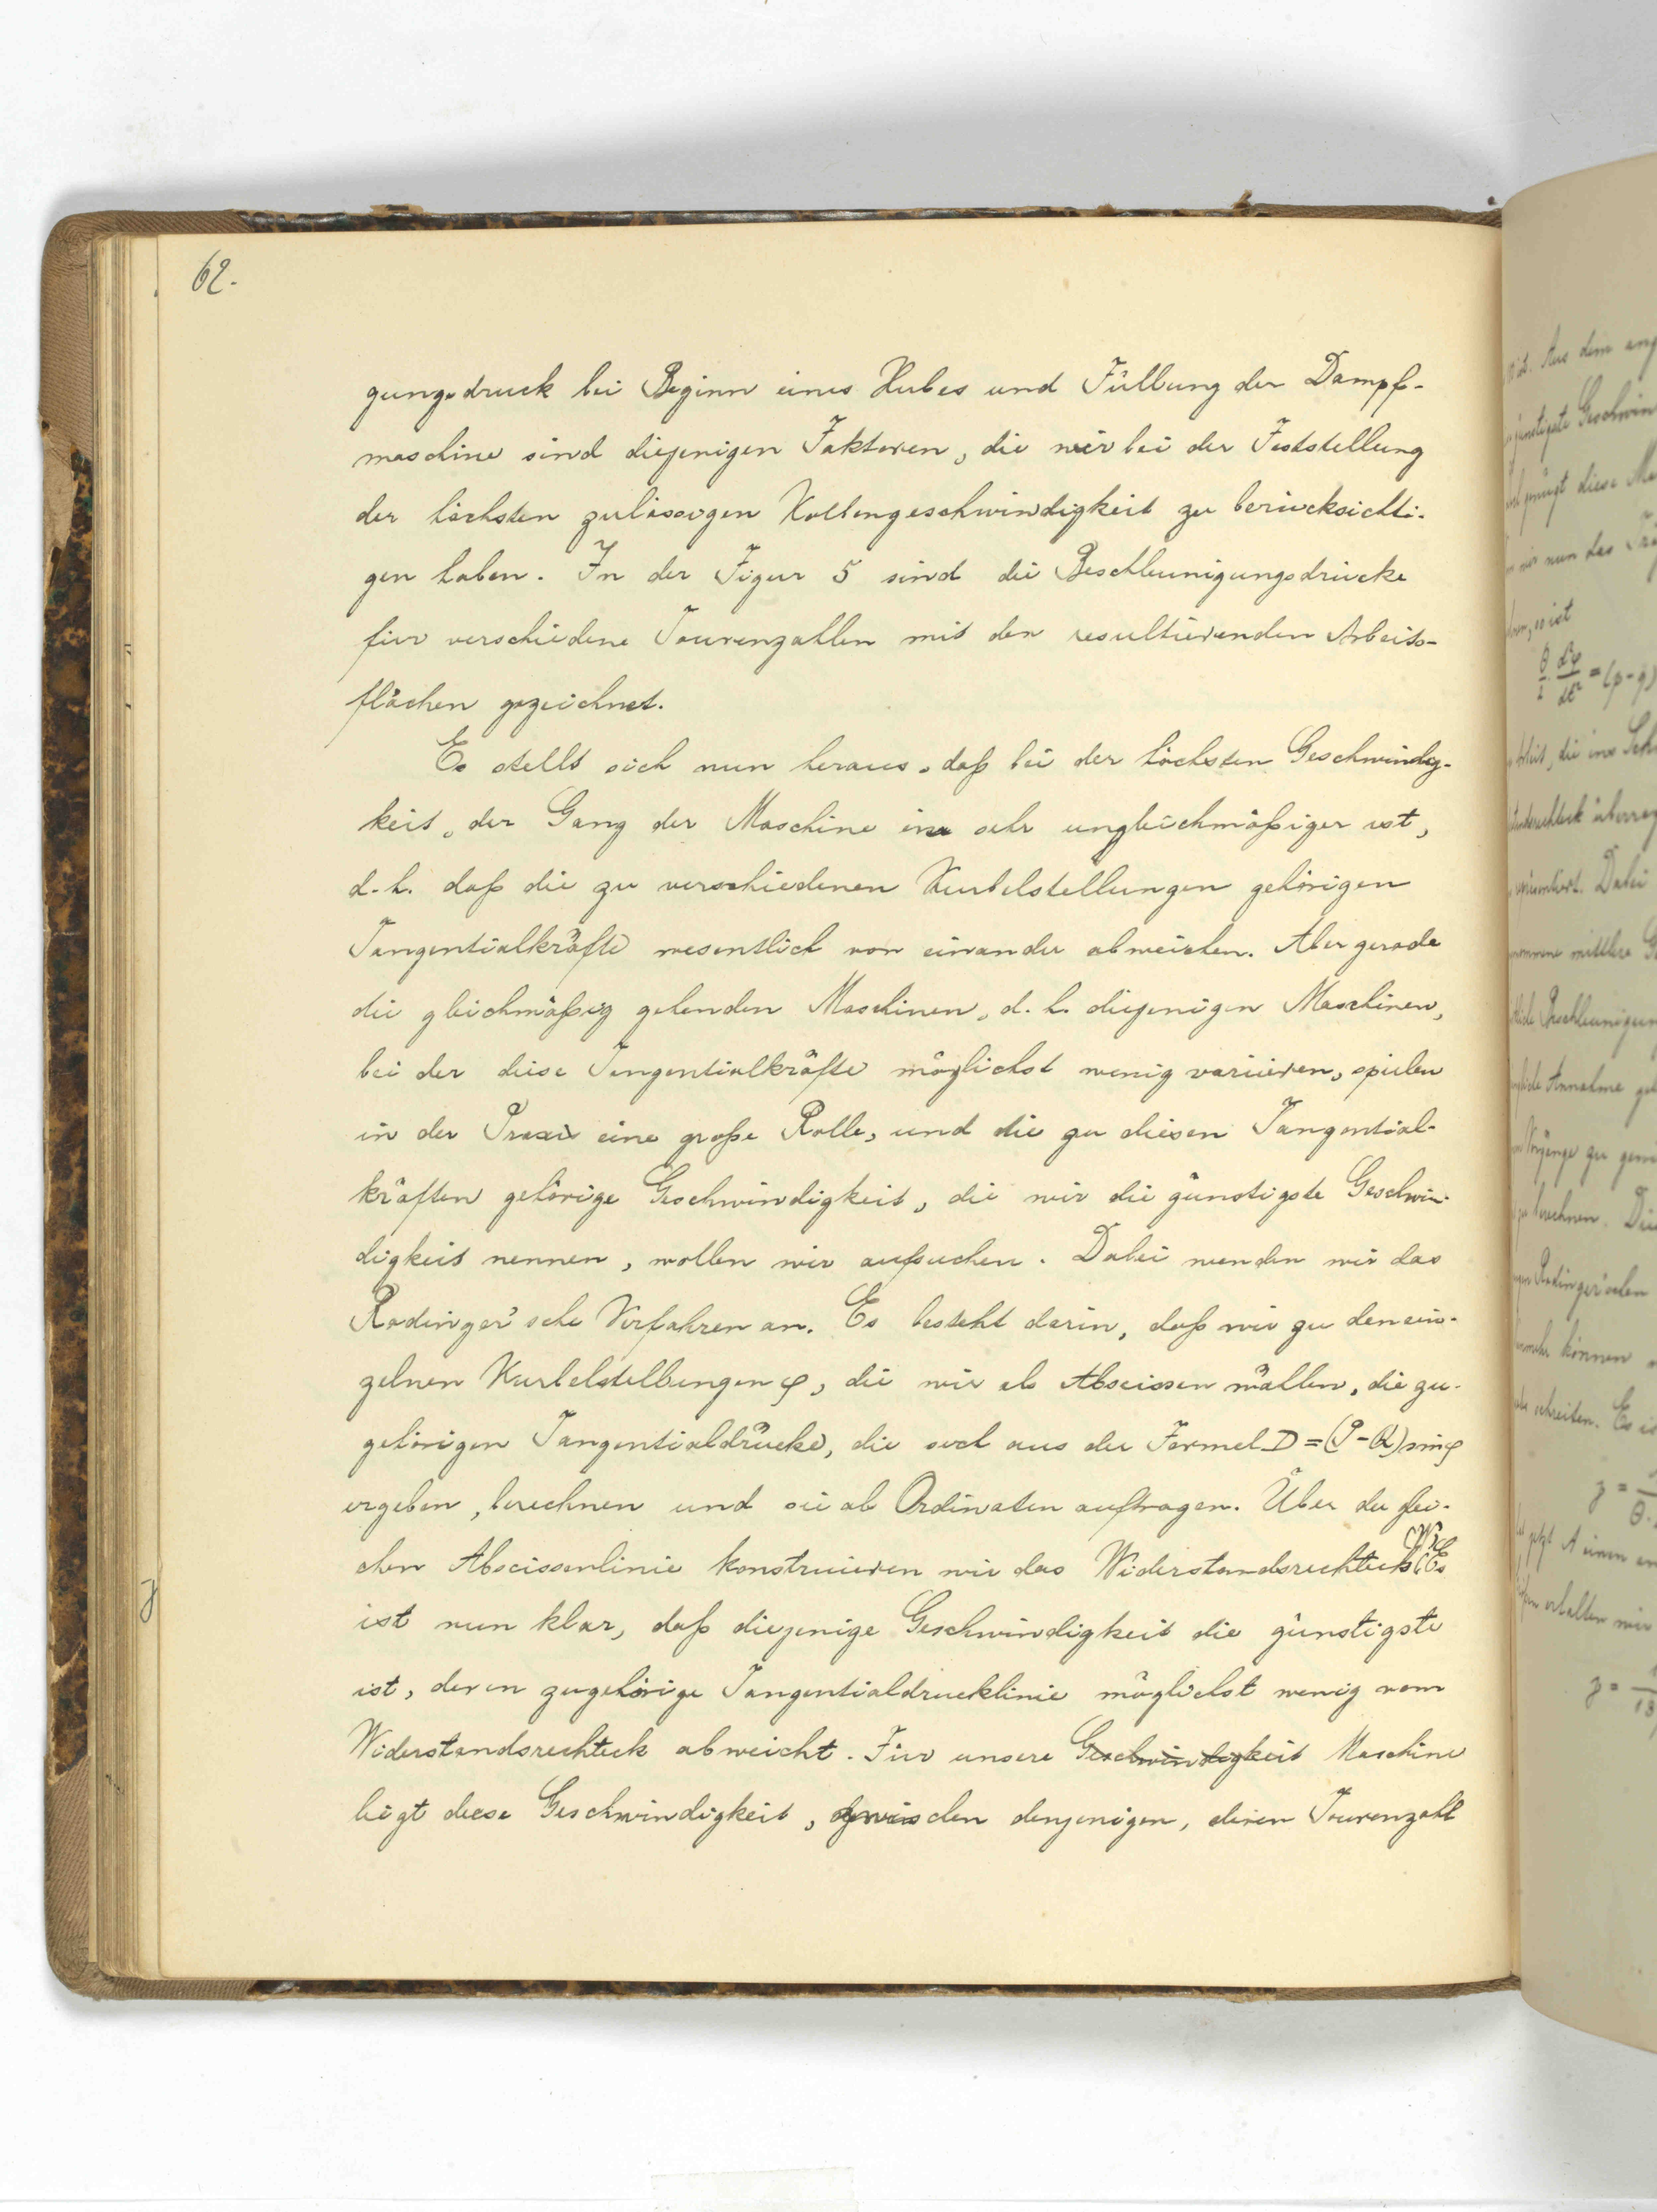 62.
gungsdruck bei Beginn eines Hubes und Füllung der Dampf-
maschine sind diejenigen Faktoren, die wir bei der Feststellung
der höchsten zulässigen Kolbengeschwindigkeit zu berücksichti-
gen haben. In der Figur 5 sind die Beschleunigungsdrücke
für verschiedene Tourenzahlen mit den resultierenden Arbeits-
flächen gezeichnet.
Es stellt sich nun heraus, daß bei der höchsten Geschwindig-
keit, der Gang der Maschine sehr ungleichmäßiger ist,
d. h. daß die zu verschiedenen Kurbelstellungen gehörigen
Tangentialkräfte wesentlich von einander abweichen. Aber gerade
die gleichmäßig gehenden Maschinen, d. h. diejenigen Maschinen,
bei der diese Tangentialkräfte möglichst wenig variieren, spielen
in der Praxis eine große Rolle, und die zu diesen Tangential-
kräften gehörige Geschwindigkeit, die wir die günstigste Geschwin-
digkeit nennen, wollen wir aufsuchen. Dabei wenden wir das
Radinger'sche Verfahren an. Es besteht darin, daß wir zu den ein-
zelnen Kurbelstellungen φ, die wir als Abscissen wählen, die zu-
gehörigen Tangentialdrücke, die sich aus der Formel D = (P-Q) sin φ
ergeben, berechnen und sie als Ordinaten auftragen. Über der glei-
chen Abscissenlinie konstruieren wir das Widerstandsrechteck (W). Es
ist nun klar, daß diejenige Geschwindigkeit die günstigste
ist, deren zugehörige Tangentialdrucklinie möglichst wenig vom
Widerstandsrechteck abweicht. Für unsere Geschwindigkeit Maschine
liegt diese Geschwindigkeit, zwischen denjenigen, deren Tourenzahl